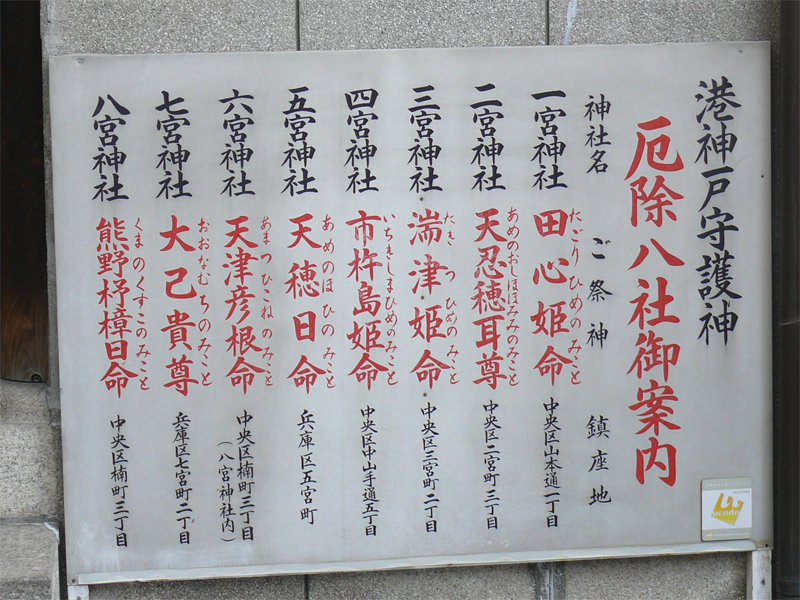 港神戸守護神
厄除八社御案内
神社名 ご祭神 鎮座地
一宮神社 田心姫命 中央区山本通一丁目
たごりひめのみこと
二宮神社 天忍穂耳尊 中央区二宮町三丁目
あめのおしほほみみのみこと
三宮神社 湍津姫命 中央区三宮町二丁目
たきつひめのみこと
四宮神社 市杵島姫命 中央区中山手通五丁目
いちきしまひめのみこと
五宮神社 天穂日命 兵庫区五宮町
あめのほひのみこと
六宮神社 天津彦根命 中央区楠町三丁目
あまつひこねのみこと
(八宮神社内)
七宮神社 大己貴尊 兵庫区七宮町二丁目
おおなむちのみこと
八宮神社 熊野杼樟日命 中央区楠町三丁目
くまのくすこのみこと
ucode